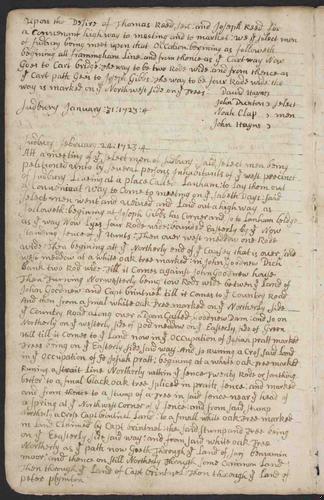 Upon the Desire of Thomas Read, sen: and Joseph Read for
a Convenient high way to meeting and to market We ye select men
of Sudbury being meet upon that Occasion begining as followeth
begining att framingham line and from thence as ye Cart way Now
Goes to Cart bridge the way to be two Rods wide and from thence as
ye Cart path Goes to Joseph Gibbs the way to be four Rods wide the
way is marked on ye Northwest side on ye trees
David Haynes
John
Noah Clap
John Haynes
select
men
Sudbury January: 31: 1723:4
Sudbury February 24: 1723:4
Att a meeting of ye select men of Sudbury said select men being
petitioned unto by several persons Inhabitants of ye west precinct
of Sudbury Living at a place Called Lanham: to Lay them out
a Convenient Way to Come to meeting on ye Sabath Days: Said
Select men went and viewed and Laid out a high way as
followeth begining at Joseph Gibbs his Corner and so to Lanham bridge
as ye way Now Lyes four Rods wide: bounded Easterly by ye Now
standing fence of ye: Then over west meadow one Rods
wide Then begining att ye Northerly end of ye Causey that is over
west meadow at a white oak tree marked in John Goodnow Dich
bank two Rod wide Till it Comes against John Goodnew house
Then Running Norwesterly being two Rods wide between ye Land of
John Goodenow and Capt brintnel till it Comes to ye Country Road
And then from a small white oak tree marked on ye Northerly side
of ye Country Road along over a Dam Called Goodnow Dam and so on
Northerly on ye westerly side of pod meadow on ye Easterly side of Green
hill till it Comes to ye Land now in ye Occupation of Josiah pratt marked
trees being on ye Easterly side said way: And so Runing a Cros said Land
in ye Occupation of sd Josiah pratt; begining at a white oak tree marked
Runing a strait Line Northerly within ye fence Twenty Rods or Something
better to a small black oak tree spliced in pratts fence and marked
and from thence to a stump of a tree in said fence near ye head of
a spring at ye Northwest Corner of ye fence: and from said stump
Northerly a Cros Capt brintnel Land to a small white oak tree marked
in Land Claimed by Capt brintnel: the said stump and tree being
on ye Easterly side said way: and from said white oak tree
Northerly as ye path now Goeth Through ye Land of Benjamin
moor and thence on still Northerly Through some Common Land
Then through ye Land of Capt brintnel Then through ye Land of
peter plympton